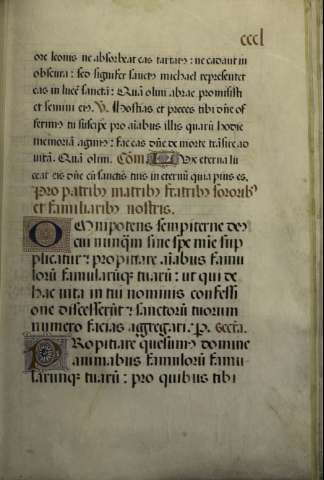 cccl
ore leonis ne absorbeat eas tartarꝰ: ne cadant in
obscura: sed signifer sanctꝰ michael representet
eas in lucē sanctā: Quā olim abrae promisisti
et semini eiꝰ. V. Hostias et preces tibi dn̄e of
ferimꝰ tu suscipe pro aīabus illis quarū hodie
memoriā agimꝰ: fac eas dn̄e de morte trāsire ad
vitā. Quā olim. Cōm̄. Lux eterna lu
ceat eis dn̄e cū sanctis tuis in eternū quia pius es.
Pro patribꝰ matribꝰ fratribꝰ sororibꝰ
et familiaribꝰ nostris.
Omnipotens sempiterne deꝰ
cui nunq̄m sine spe mīe sup
plicatur: propitiare aīabus famu
lorū famularūqꝫ tuarū: ut qui de
hac vita in tui nominis confessi
one discesserūt: sanctorū tuorum
numero facias aggregari. P. Secta.
Propitiare quesumꝰ domine
animabus famulorū famu
larunqꝫ tuarū: pro quibus tibi